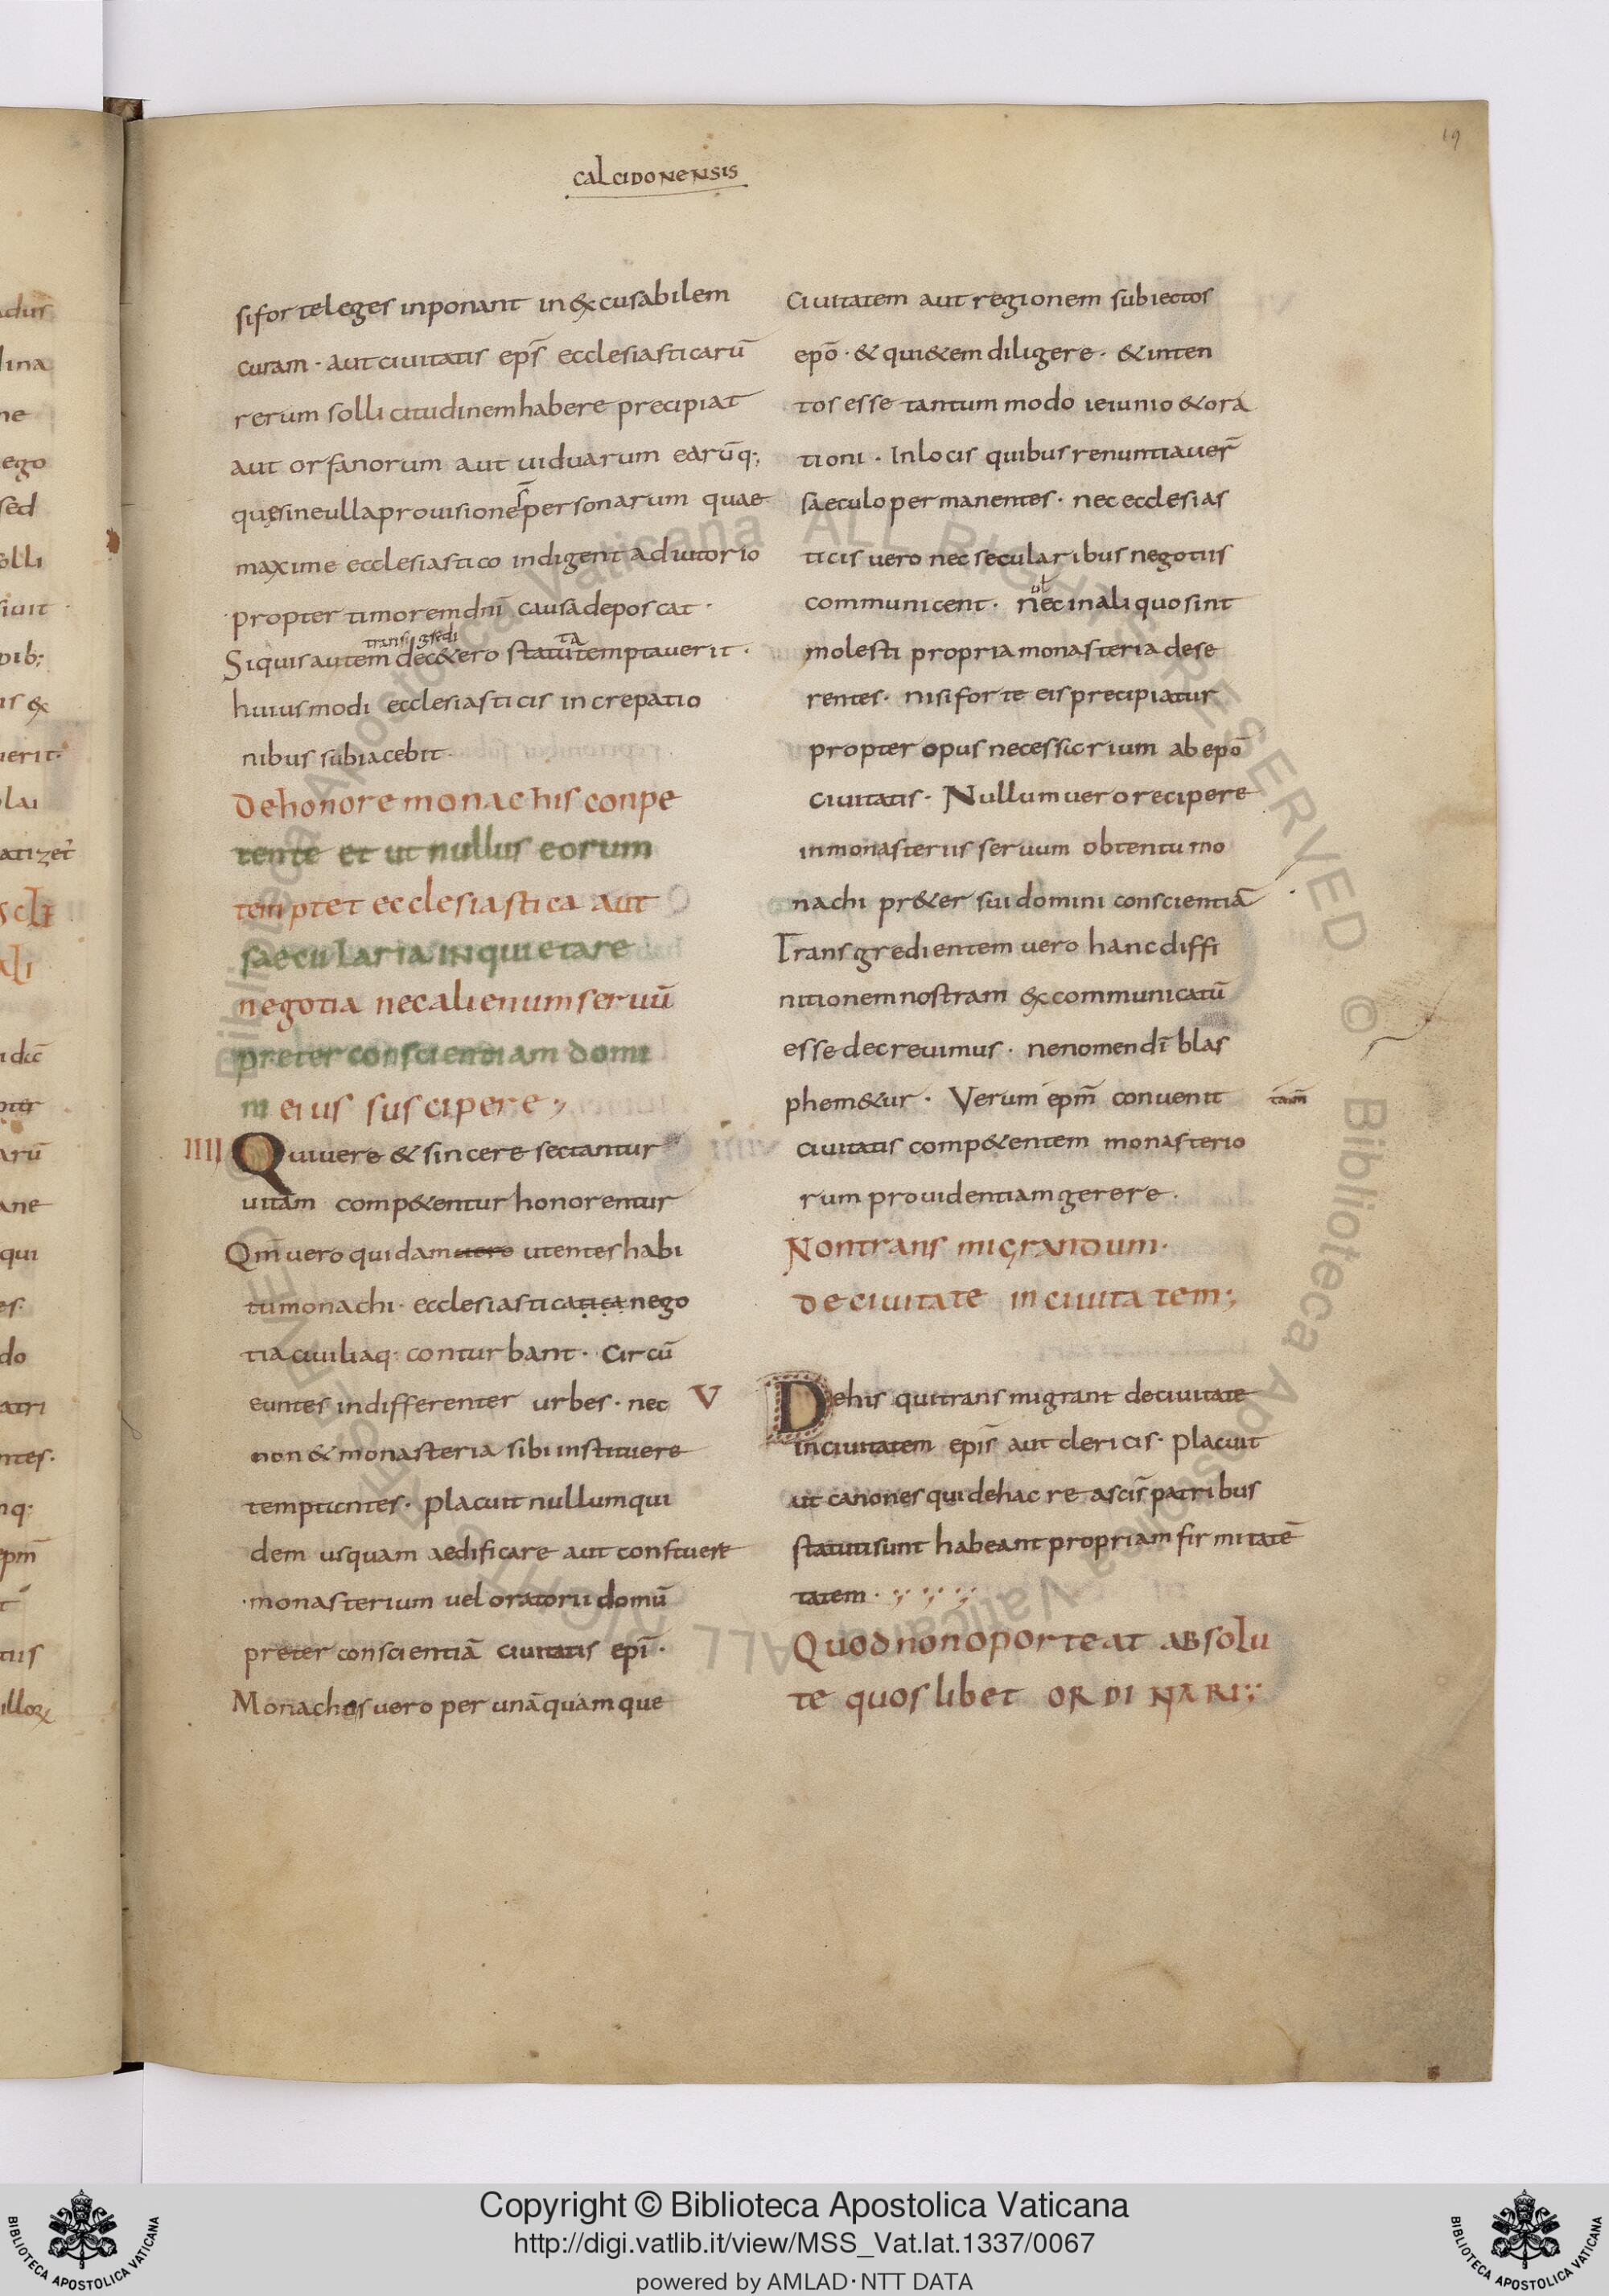 19
CALCIDONENSIS
si forte leges inponant in&xcusabilem
curam · aut ciuitatis ep̄s ecclesiasticarū
rerum sollicitudinem habere precipiat
aut orfanorum aut uiduarum earūq·;
quę sine ulla prouisione s̄ personarum quae
maxime ecclesiastico indigent adiutorio
propter timorem dn̄i causa deposcat ·
transgredi ta
Siquis autem dec&ero statuta temptauerit ·
huiusmodi ecclesiasticis increpatio
nibus subiacebit
De honore monachis conpe
tente et ut nullus eorum
temptet ecclesiastica aut
saecularia inquietare
negotia nec alienum seruū
preter conscientiam domi
ni eius suscipere ;
IIII Qui uere & sincere sectantur
uitam comp&entur honorentur
Qm̄ uero quidam uero utentes habi
tu monachi · ecclesiasticatica nego
tia ciuiliaq· conturbant · Circū
euntes indifferenter urbes · nec
non & monasteria sibi instituere
temptantes · placuit nullum qui
dem usquam aedificare aut constuere
monasterium uel oratorii domū
preter conscientiā ciuitatis epī ·
Monachos uero per unāquamque
ciuitatem aut regionem subiectos
epō · & qui&em diligere · & inten
tos esse tantum modo ieiunio & ora
tioni · In locis quibus renuntiauer̄
saeculo permanentes · nec ecclesias
ticis uero nec secularibus negotiis
communicent · nec in aliquo sint
molesti propria monasteria dese
rentes · nisi forte eis precipiatur
propter opus necessarium ab epō
ciuitatis · Nullum uero recipere
in monasteriis seruum obtentu mo
nachi pr&er sui domini conscientiā
Transgredientem uero hanc diffi
nitionem nostram &xcommunicatū
esse decreuimus · ne nomen dī blas
phem&ur · Verum epm̄ conuenit
ciuitatis comp&entem monasterio
rum prouidentiam gerere ·
Non transmigrandum ·
de ciuitate in ciuitatem ;
V De his qui transmigrant de ciuitate
in ciuitatem epīs aut clericis · placuit
ut canones qui de hac re a sc̄is patribus
statuti sunt habeant propriam firmitatē
tatem ·
Quod non oporteat absolu
te quoslibet ORDINARI ;
Copyright © Biblioteca Apostolica Vaticana
http://digi.vatlib.it/view/MSS_Vat.lat.1337/0067
powered by AMLAD·NTT DATA